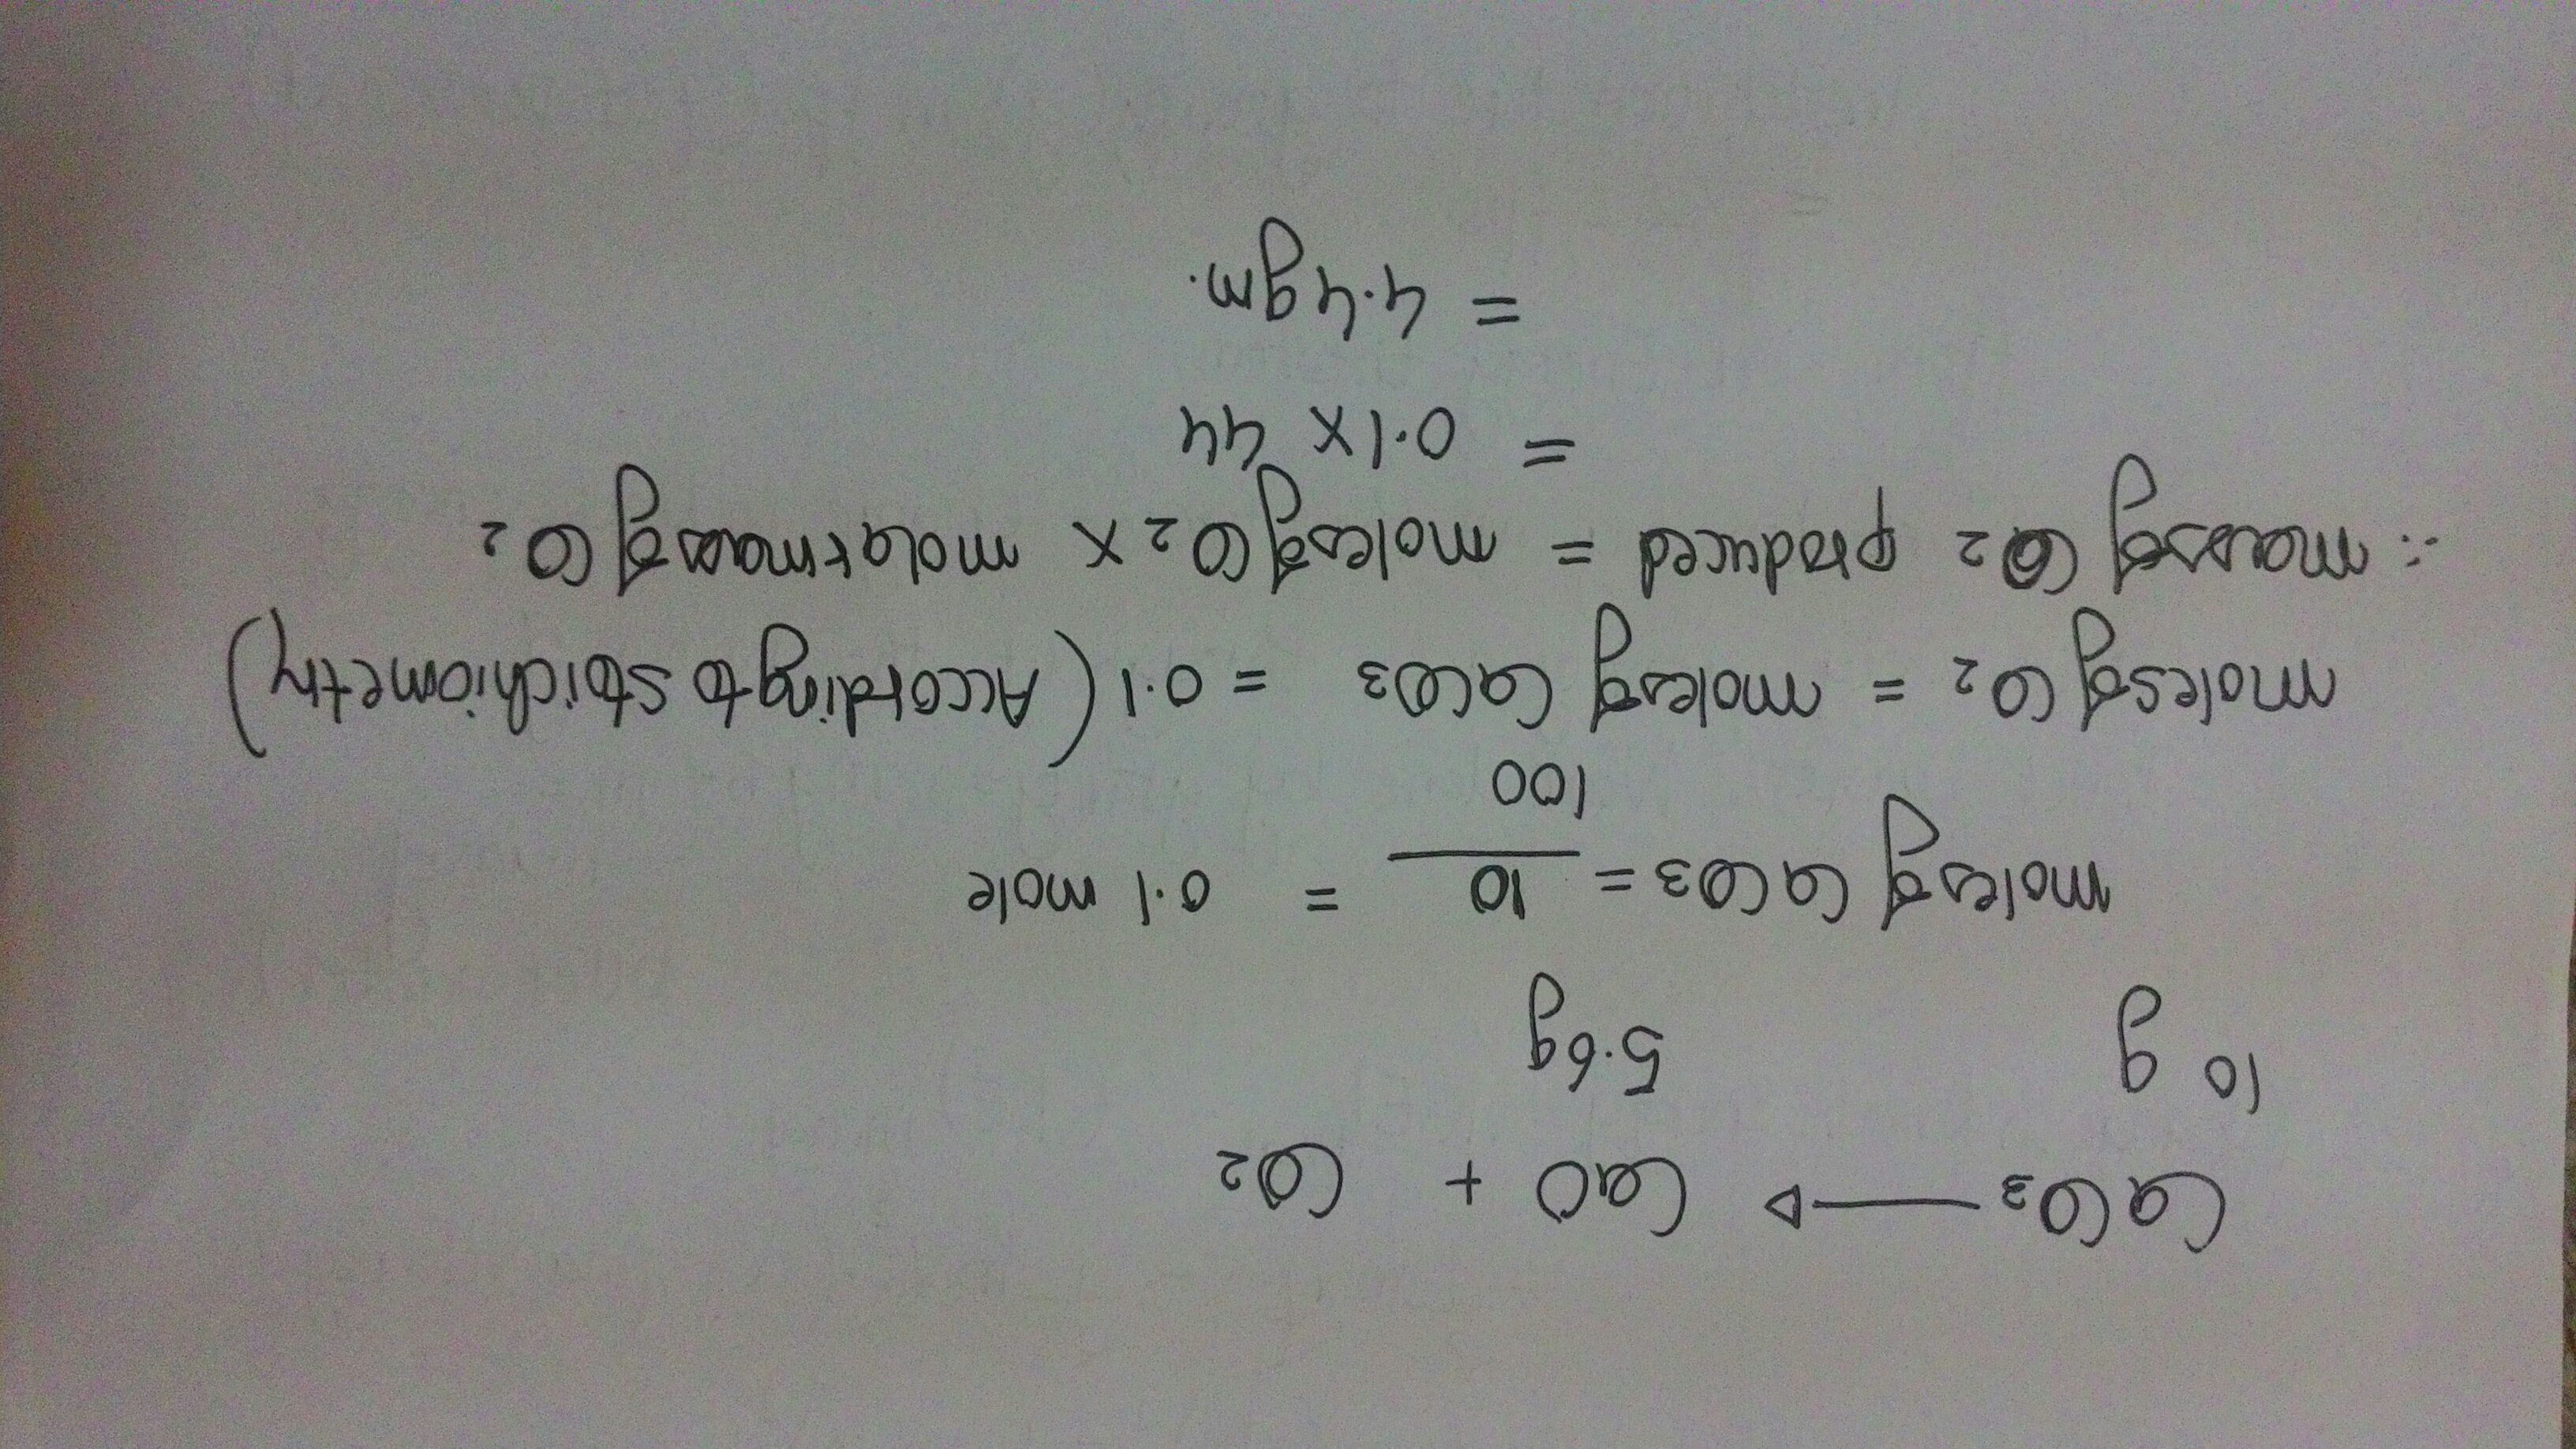 CaCO₃ ⟶ CaO + CO₂
10 g 5.6g
moles of CaCO₃ = 10/100 = 0.1 mole
moles of CO₂ = moles of CaCO₃ = 0.1 (According to stoichiometry)
∴ mass of CO₂ produced = moles of CO₂ x molar mass of CO₂
= 0.1 x 44
= 4.4gm.